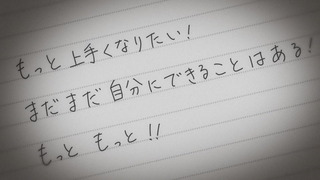 もっと上手くなりたい!
まだまだ自分にできることはある!
もっと もっと!!